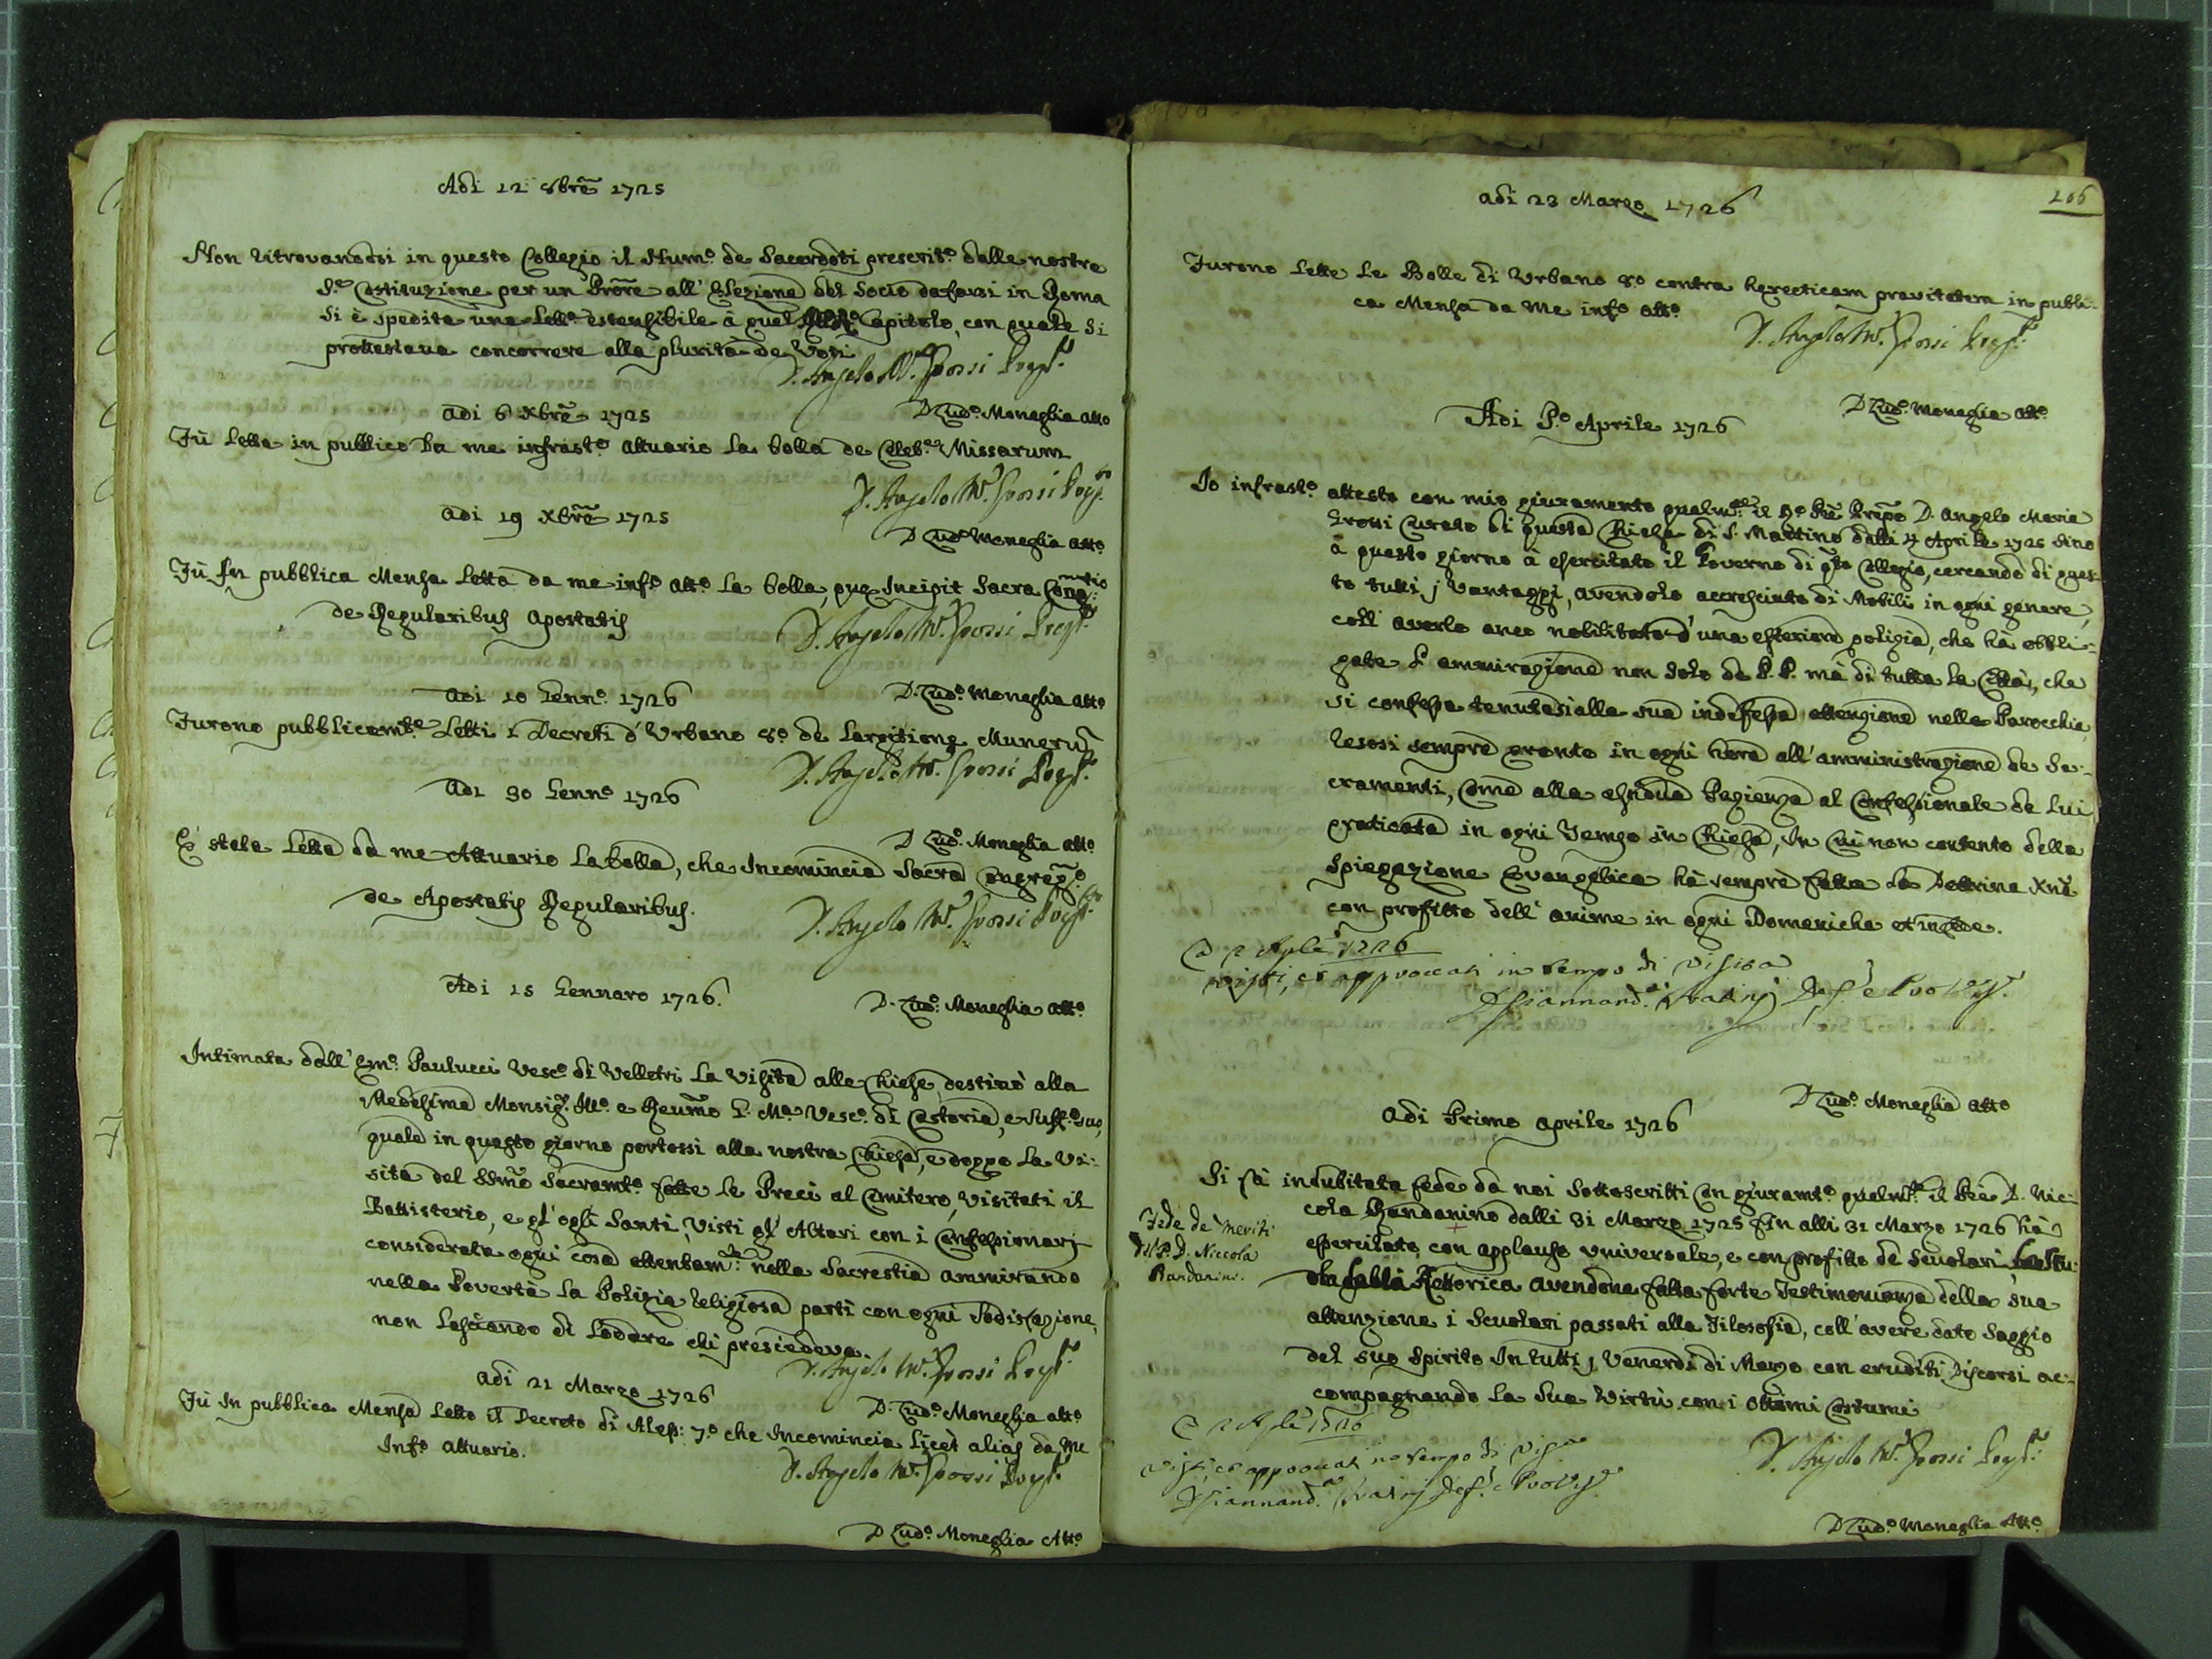 Adi 12 8brẽ 1725
Non ritrovandosi in questo Collegio il Num.º de Sacerdoti prescrit.º dalle nostre
S.e Costituzione per un Prõre all' Elezione del Socio da farsi in Roma
si è spedita una lett.ª ostensibile à quel Capitolo, con quale si
protestava concorrere alla pluritá de Voti
D. Angelo M.ª Grossi Prep.to
D Lud.º Moneglia Att.º
adi 6 Xbrẽ 1725
Fù letta in publico da me infrast.º attuario la bolla de Celeb.e Missarum
D. Angelo M.ª Grossi Prep.to
D Lud.º Moneglia att.º
adi 19 Xbrẽ 1725
Fù In pubblica Mensa letta da me inf.º att.º la bolla, quę Incipit Sacra Cong:
de Regularibus apostatis
D. Angelo M.ª Grossi Prep.to
D. Lud.º Moneglia att.º
adi 10 Genn.º 1726
Furono pubblicam.te Letti i Decreti d'Urbano 8.º de Largitione Munerũ
D. Angelo M.ª Grossi Prep.to
adi 30 Genn.º 1726
D Lud.º Moneglia att.º
E' stata letta da me Attuario la bolla, che Incomincia Sacra Congreg.e
de Apostatis Regularibus.
D. Angelo M.ª Grossi Prep.to
Adi 15 Gennaro 1726.
D. Lud.º Moneglia att.º
Intimata dall' Em.º Paulucci Vesc.º di Velletri la Visita alle Chiese, destinò alla
Medesima Monsig.r Ill.º e Reverm̃o G. M.ª Vesc.º di Castoria, e Suff.º suo,
quale in questo giorno portossi alla nostra Chiesa, e doppo la Vi-
sita del SSm̃o Sacramt.º fatte le Preci al Cimitero, visitati il
Battisterio, e gl' ogli Santi, visti gl' Altari con i Confessionarj
considerata ogni cosa attentam.te nella Sacrestia ammirando
nella Povertà la Polizia religiosa partì con ogni Sodisfazione,
non lasciando di lodare chi presiedeva.
D. Angelo M.ª Grossi Prep.to
adi 21 Marzo 1726
D. Lud.º Moneglia att.º
Fù In pubblica Mensa letto il Decreto di Aless: 7.º che Incomincia Licet alias da me
Inf.º attuario.
D. Angelo M.ª Grossi Prep.to
D Lud.º Moneglia Att.º
106
adi 23 Marzo 1726
Furono lette le Bolle di Urbano 8.º contra hęreticam pravitatem in publi-
ca Mensa da me inf.º att.º
D. Angelo M.ª Grossi Prep.to
D Lud.º Moneglia att.º
Adi P.º Aprile 1726
Io infrast.º attesto con mio giuramento qualm.te il Prep.º D. Angelo Maria
Grossi Curato di questa Chiesa di S. Martino dalli Aprile 1725 sino
à questo giorno à esercitato il Governo di q̃to Collegio, cercando di ques-
to tutti j vantaggi, avendolo accresciuto di Mobili in ogni genere,
coll' averlo anco nobilitato d'una esteriore polizia, che hà obbli-
gata l'ammirazione non solo de P.P. mà di tutta la Città, che
si confessa tenutasi alla sua indefessa attenzione nella Parocchia
resosi sempre pronto in ogni hora all'amministrazione de Sa-
cramenti, come alla assidua Pazienza al Confessionale da lui
praticata in ogni Tempo in Chiesa, In cui non contento della
Spiegazione Evangelica hà sempre fatta la Dottrina Xnã
con profitto dell' anime in ogni Domenicha et in fede.
A 2 Aple 1726
visti, et approvati in tempo di Visita
D Giannand.ª Def.e e Prov.le
D Lud.º Moneglia att.º
adi Primo aprile 1726
Si fà indubitata fede da noi Sottoscritti con giuramt.º qualm.te il Pre D. Nic-
cola Randanino dalli 31 Marzo 1725 fin alli 31 Marzo 1726 hà
esercitato con applauso universale, e con profitto de Scuolari la Scu-
ola della Rettorica avendone fatta forte Testimonianza della sua
attenzione i Scuolari passati alla Filosofia, coll' avere dato Saggio
del suo Spirito In tutti j Venerdì di Marzo con eruditi Discorsi ac-
compagnando la Sua Virtù con i ottimi Costumi
Fede de meriti
del P. D. Niccola
Randanini.
A 2 Aple 1726
visti, et approvati in tempo di Visita
D Giannand.ª Def.e e Prov.le
D. Angelo M.ª Grossi Prep.to
D Lud.º Moneglia Att.º